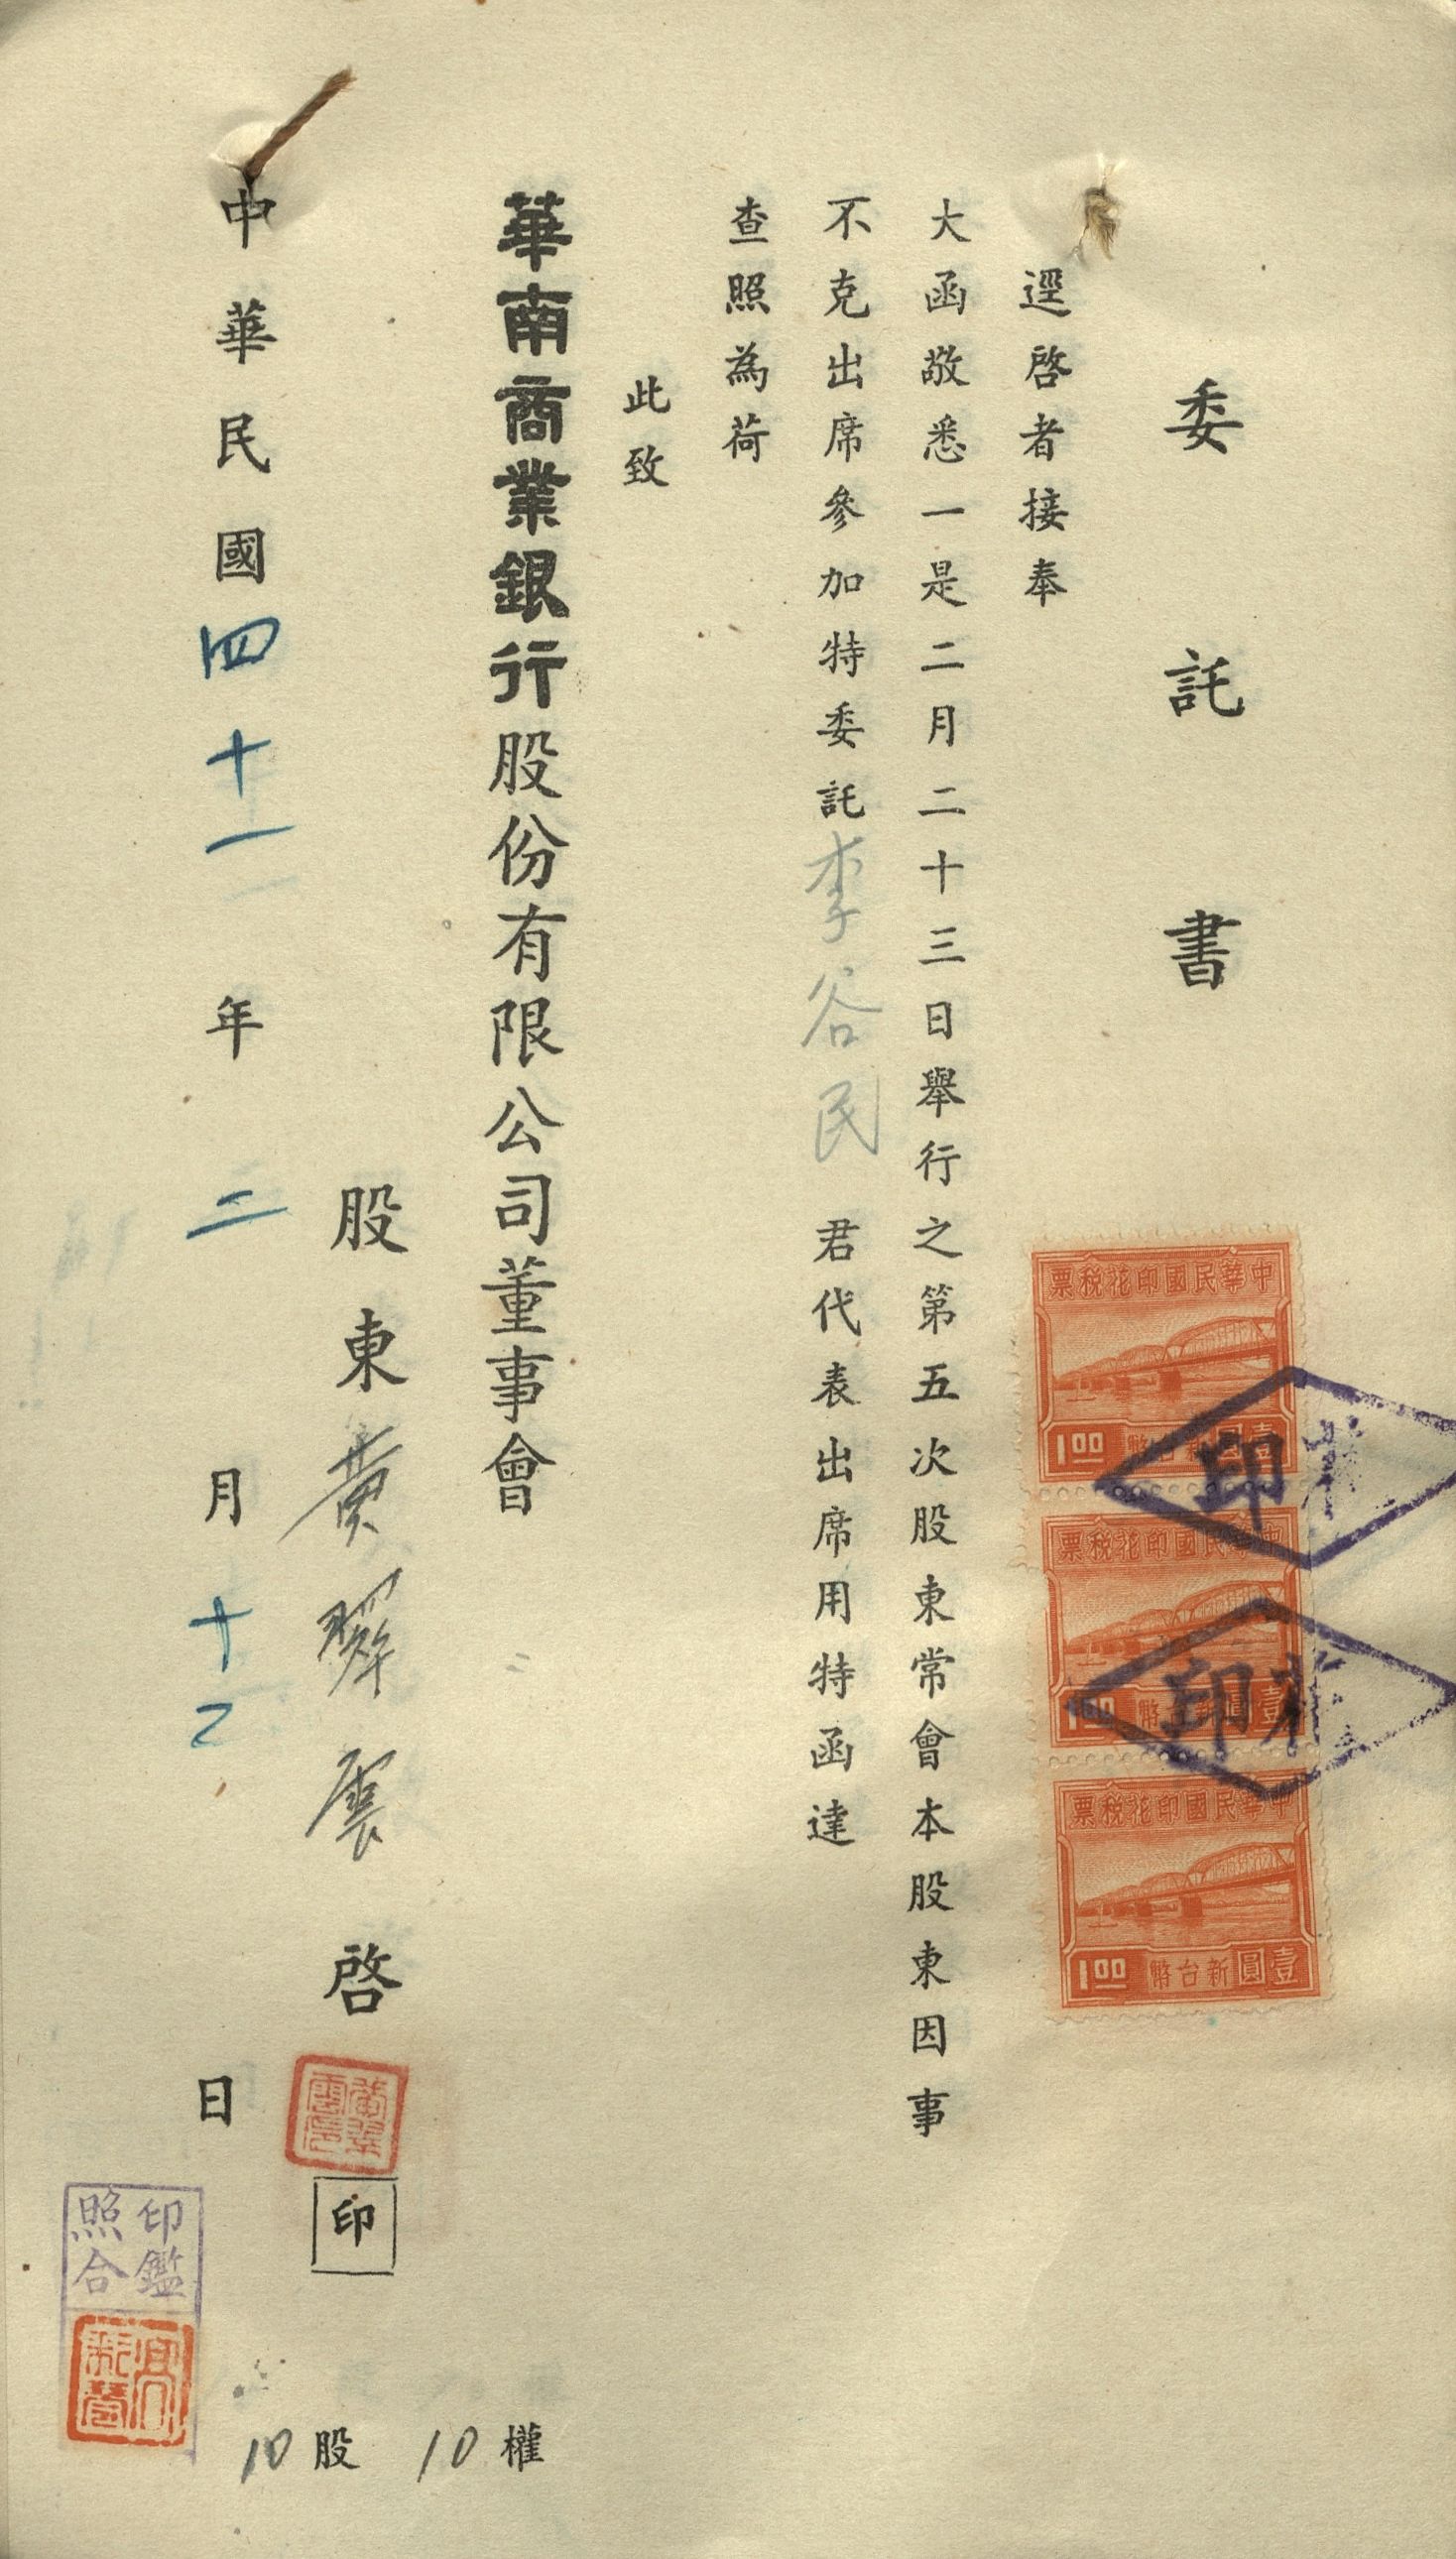 委託書
逕啓者接奉
大函敬悉一是二月二十三日舉行之第五次股東常會本股東因事
不克出席參加特委託李谷民君代表出席用特函達
查照為荷
此致
華南商業銀行股份有限公司董事會
股東黃翠雲啓
印
中華民國四十一年二月十乙日
10股 10權
印鑑
照合
中華民國印花稅票
壹圓新台幣
1.00
中華民國印花稅票
壹圓新台幣
1.00
中華民國印花稅票
壹圓新台幣
1.00
印
印